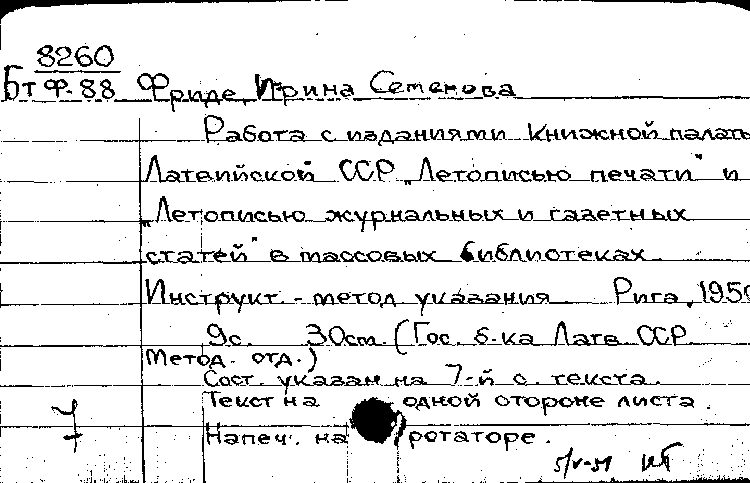 8260
Бт Ф-88 Фриде, Ирина Семенова
Работа с изданиями Книжной палаты
Латвийской ССР „Летописью печати" и
„Летописью журнальных и газетных
статей" в массовых библиотеках
Инструкт.-метод указания Рига, 195
9с. 30cm. (Гос. б-ка Латв. ССР
Метод. отд.)
Сост. указан на 7-й с. текста.
Текст на одной стороне листа.
Напеч. на ротаторе.
5/V-51